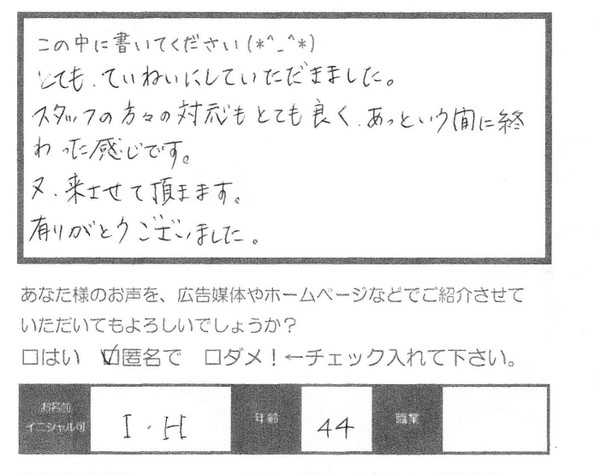 この中に書いてください(*^_^*)
とても、ていねいにしていただきました。
スタッフの方々の対応もとても良く、あっという間に終
わった感じです。
又、来させて頂きます。
有りがとうございました。
あなた様のお声を、広告媒体やホームページなどでご紹介させて
いただいてもよろしいでしょうか？
□はい ☑匿名で □ダメ！←チェック入れて下さい。
お名前
イニシャル可
I・H
年齢
44
職業